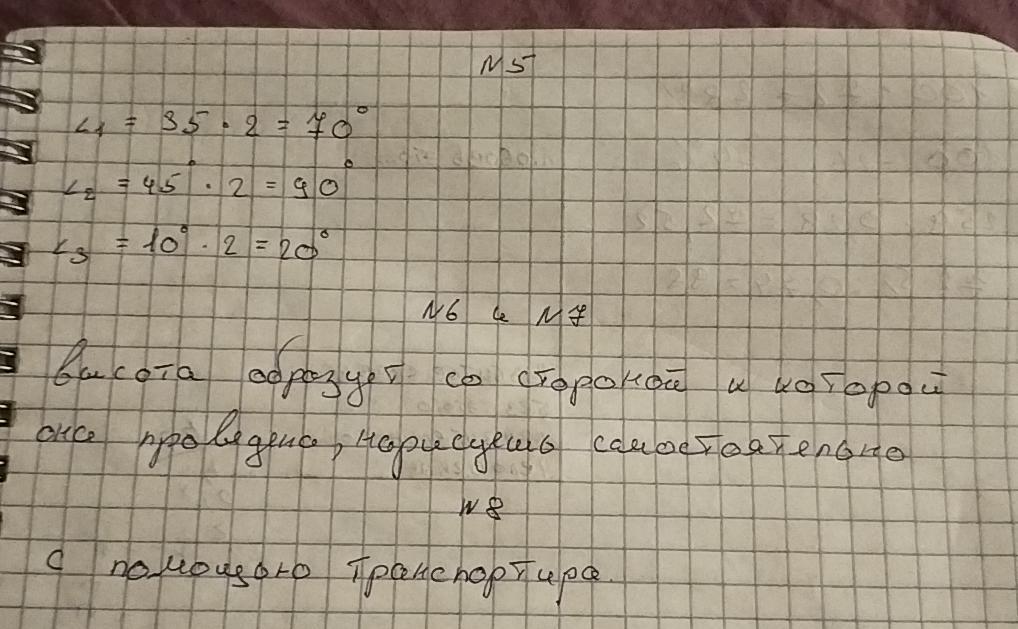 N5
∠1 = 35 · 2 = 70°
∠2 = 45° · 2 = 90°
∠3 = 10° · 2 = 20°
N6 и N7
высота образует со стороной к которой
она проведена, нарисуешь самостоятельно
N8
С помощью транспортира.